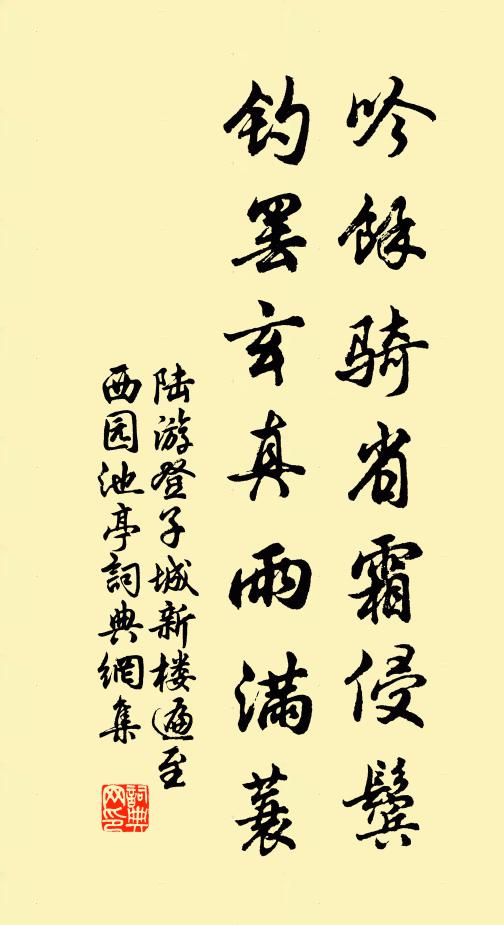 吟餘骑省霜侵鬓
钓罢玄真雨满蓑
陆游登子城新楼遍至
西园池亭詞典網集
詞典
网印